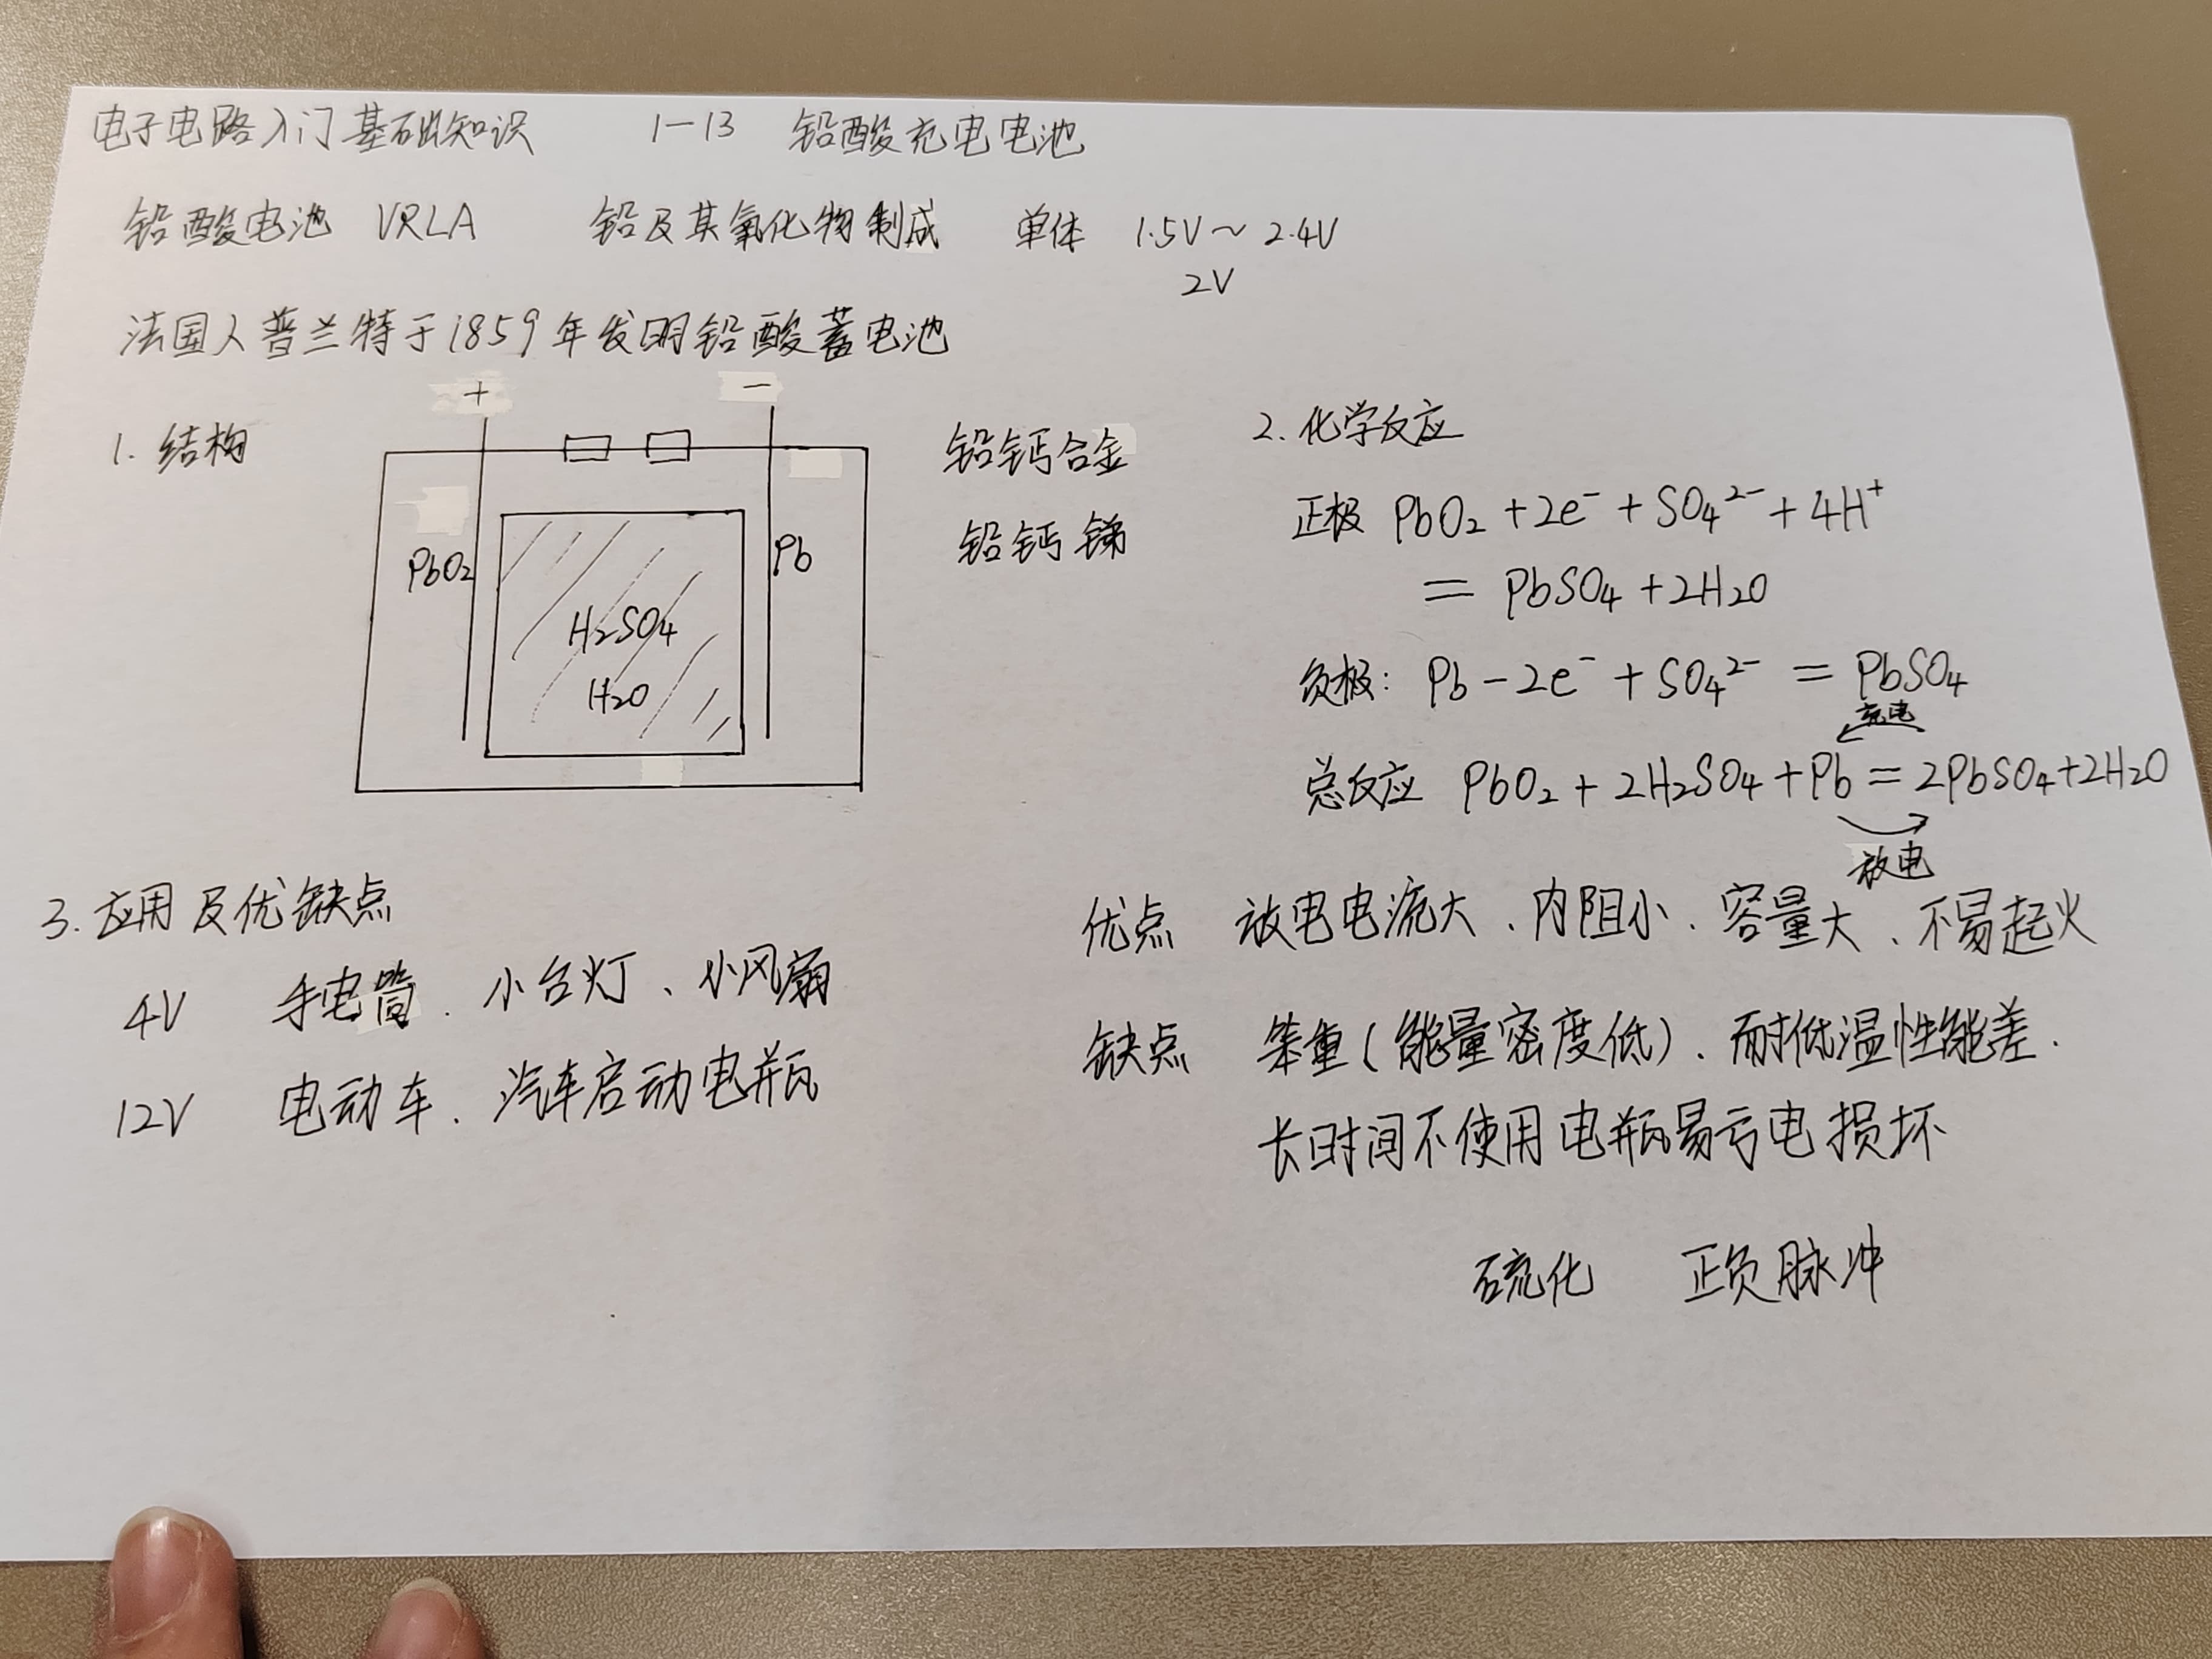 电子电路入门基础知识 1-13 铅酸充电电池
铅酸电池 VRLA 铅及其氧化物制成 单体 1.5V～2.4V
2V
法国人普兰特于1859年发明铅酸蓄电池
1. 结构
+ −
PbO₂ Pb
H₂SO₄
H₂O
铅钙合金
铅钙锑
2. 化学反应
正极 PbO₂ + 2e⁻ + SO₄²⁻ + 4H⁺
= PbSO₄ + 2H₂O
负极: Pb − 2e⁻ + SO₄²⁻ = PbSO₄
充电
总反应 PbO₂ + 2H₂SO₄ + Pb = 2PbSO₄ + 2H₂O
放电
3. 应用及优缺点
4V 手电筒、小台灯、小风扇
12V 电动车、汽车启动电瓶
优点 放电电流大、内阻小、容量大、不易起火
缺点 笨重(能量密度低)、耐低温性能差.
长时间不使用电瓶易亏电损坏
硫化 正负脉冲